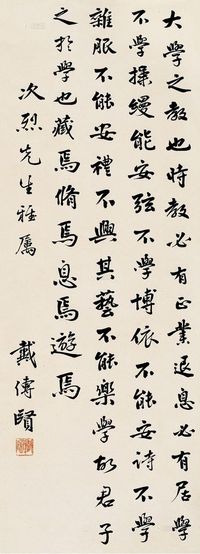 大學之教也時教必有正業退息必有居學
不學操縵不能安弦不學博依不能安詩不學
雜服不能安禮不興其藝不能樂學故君子
之於學也藏焉脩焉息焉遊焉
次烈先生雅屬
戴傳賢